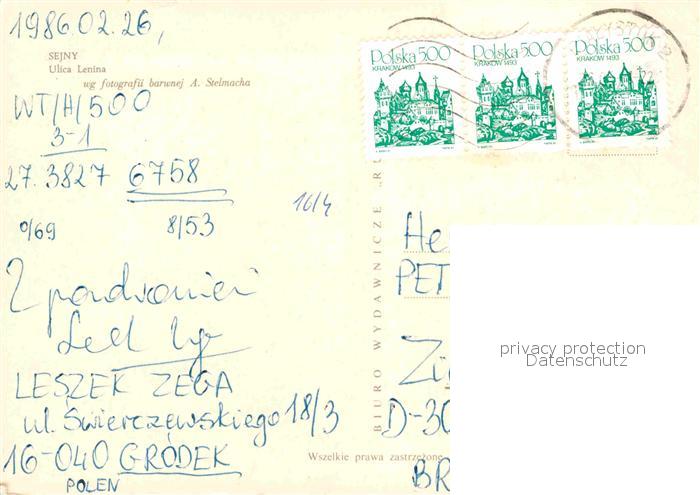 1986.02.26,
SEJNY
Ulica Lenina
wg fotografii barwnej A. Stelmacha
WT/H/500
3-1
27.3827 6758
0/69 8/53
16/4
Z pozdrowieniami
LESZEK ZEGA
ul. Świerczewskiego 18/3
16-040 GRÓDEK
POLEN
BIURO WYDAWNICZE „RU
Wszelkie prawa zastrzeżone
Polska 5.00
KRAKÓW 1493
Polska 5.00
KRAKÓW 1493
Polska 5.00
KRAKÓW 1493
He
PET
Zi
D-30
BR
privacy protection
Datenschutz